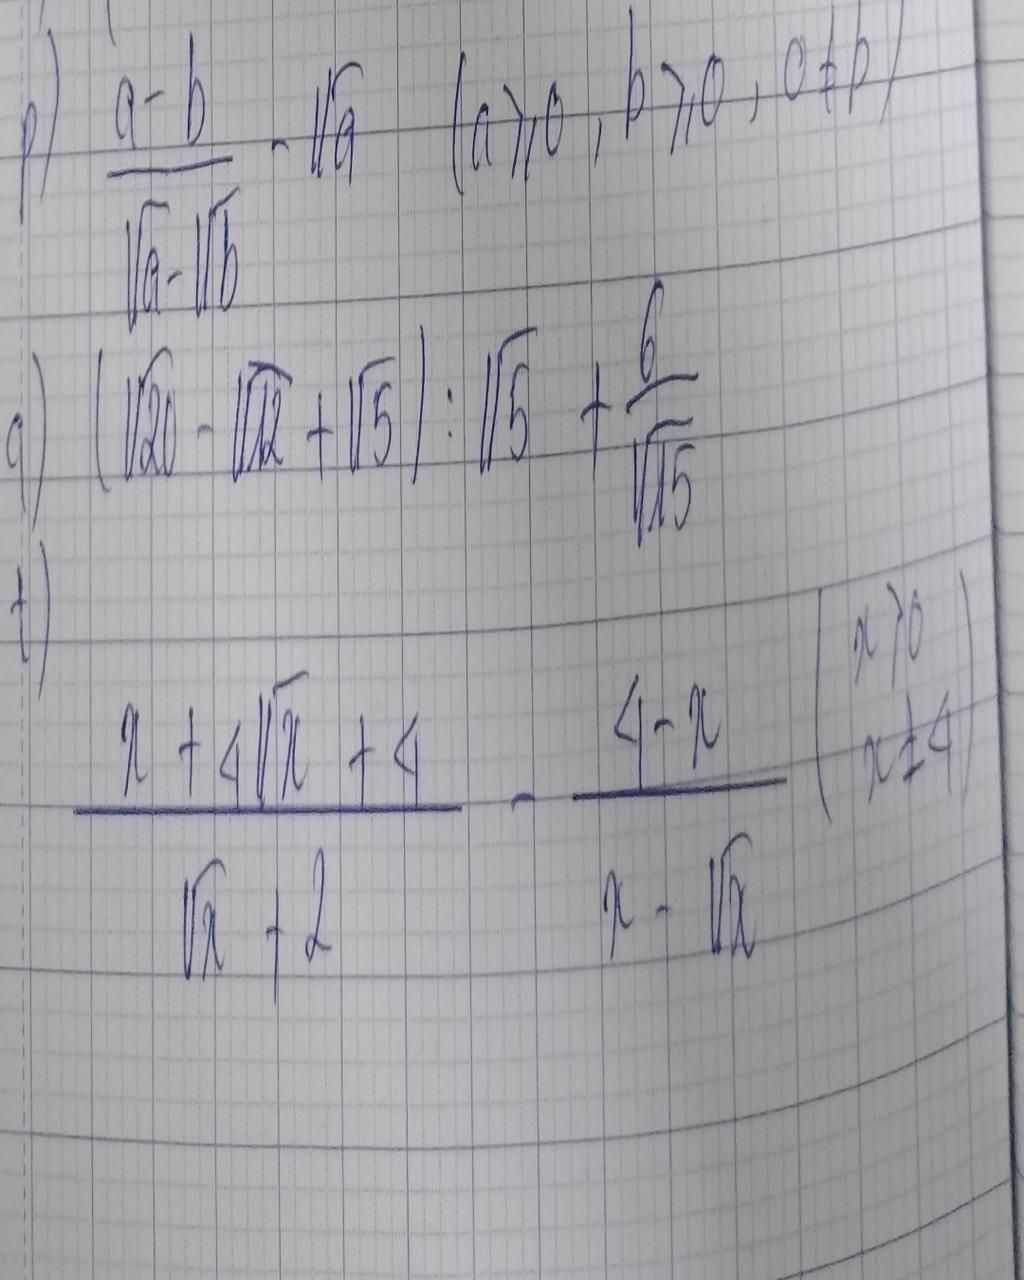 p) \frac{a-b}{\sqrt{a}-\sqrt{b}} - \sqrt{a} (a ⩾ 0, b ⩾ 0, a ≠ b)
q) (\sqrt{20} - \sqrt{12} + \sqrt{5}) : \sqrt{5} + \frac{6}{\sqrt{15}}
t) \frac{x + 4\sqrt{x} + 4}{\sqrt{x} + 2} - \frac{4 - x}{x - \sqrt{x}} (x > 0, x ≠ 4)